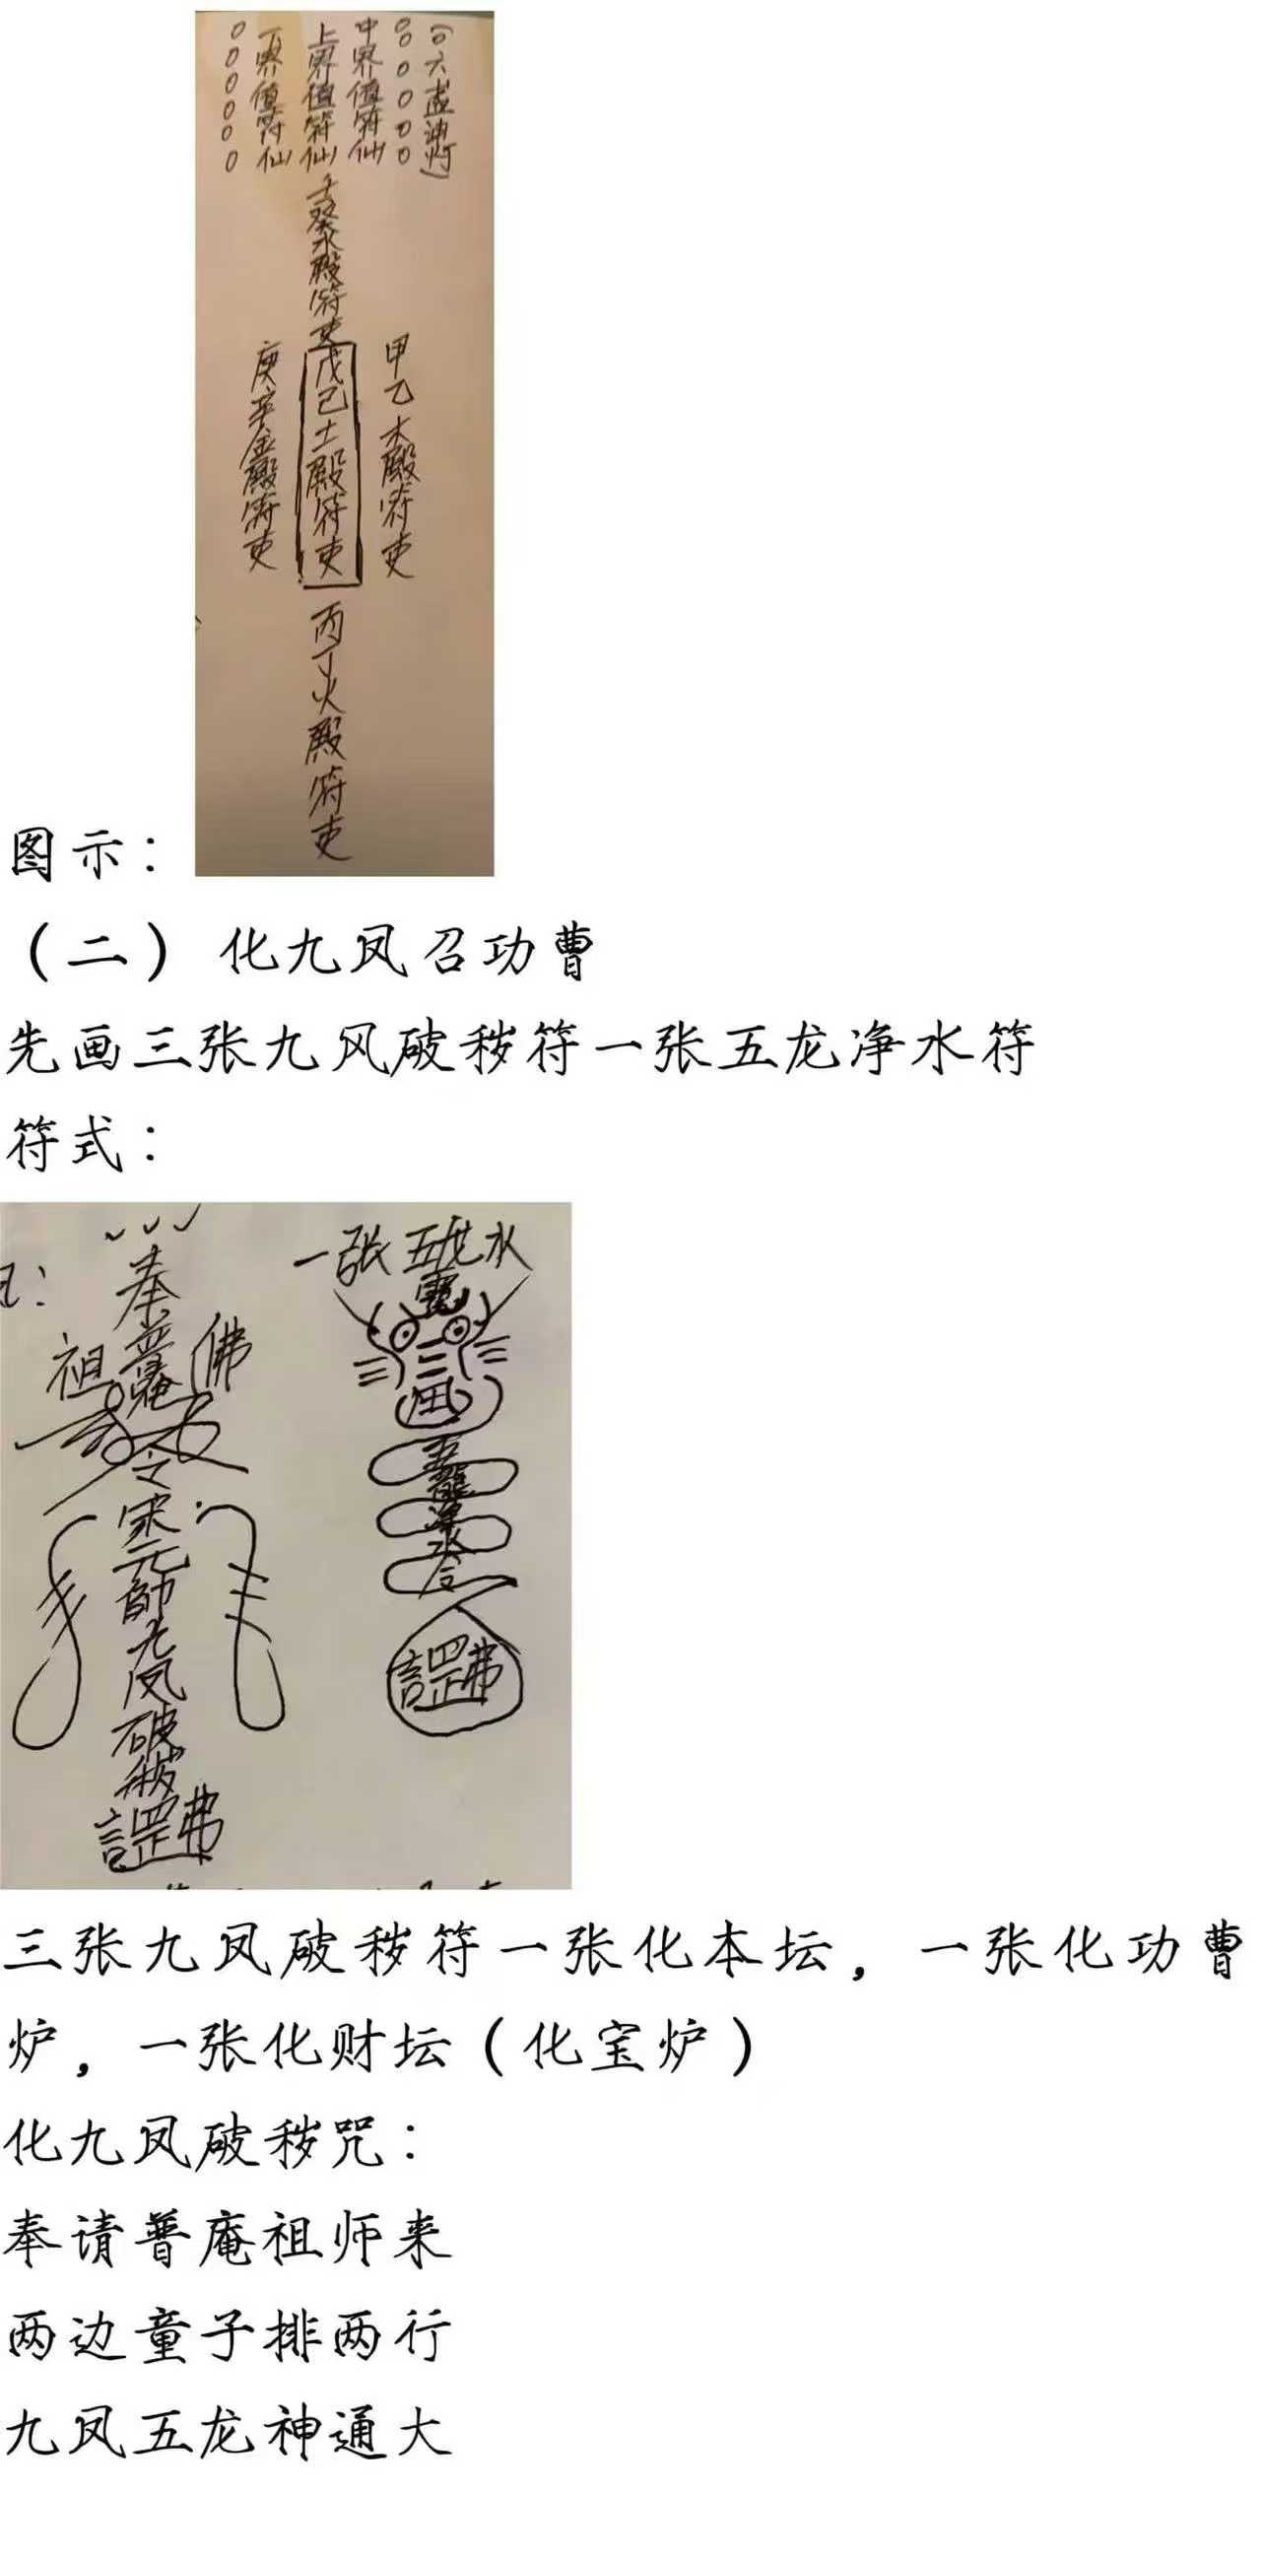 (六盏油灯)
中界值符仙
上界值符仙
下界值符仙
壬癸水殿符吏
甲乙木殿符吏
戊己土殿符吏
庚辛金殿符吏
丙丁火殿符吏
图示：
（二）化九凤召功曹
先画三张九风破秽符一张五龙净水符
符式：
一张五龙水
奉普庵
祖
佛
令
宋元帅九凤破秽
五龍净水
三张九凤破秽符一张化本坛，一张化功曹
炉，一张化财坛（化宝炉）
化九凤破秽咒：
奉请普庵祖师来
两边童子排两行
九凤五龙神通大